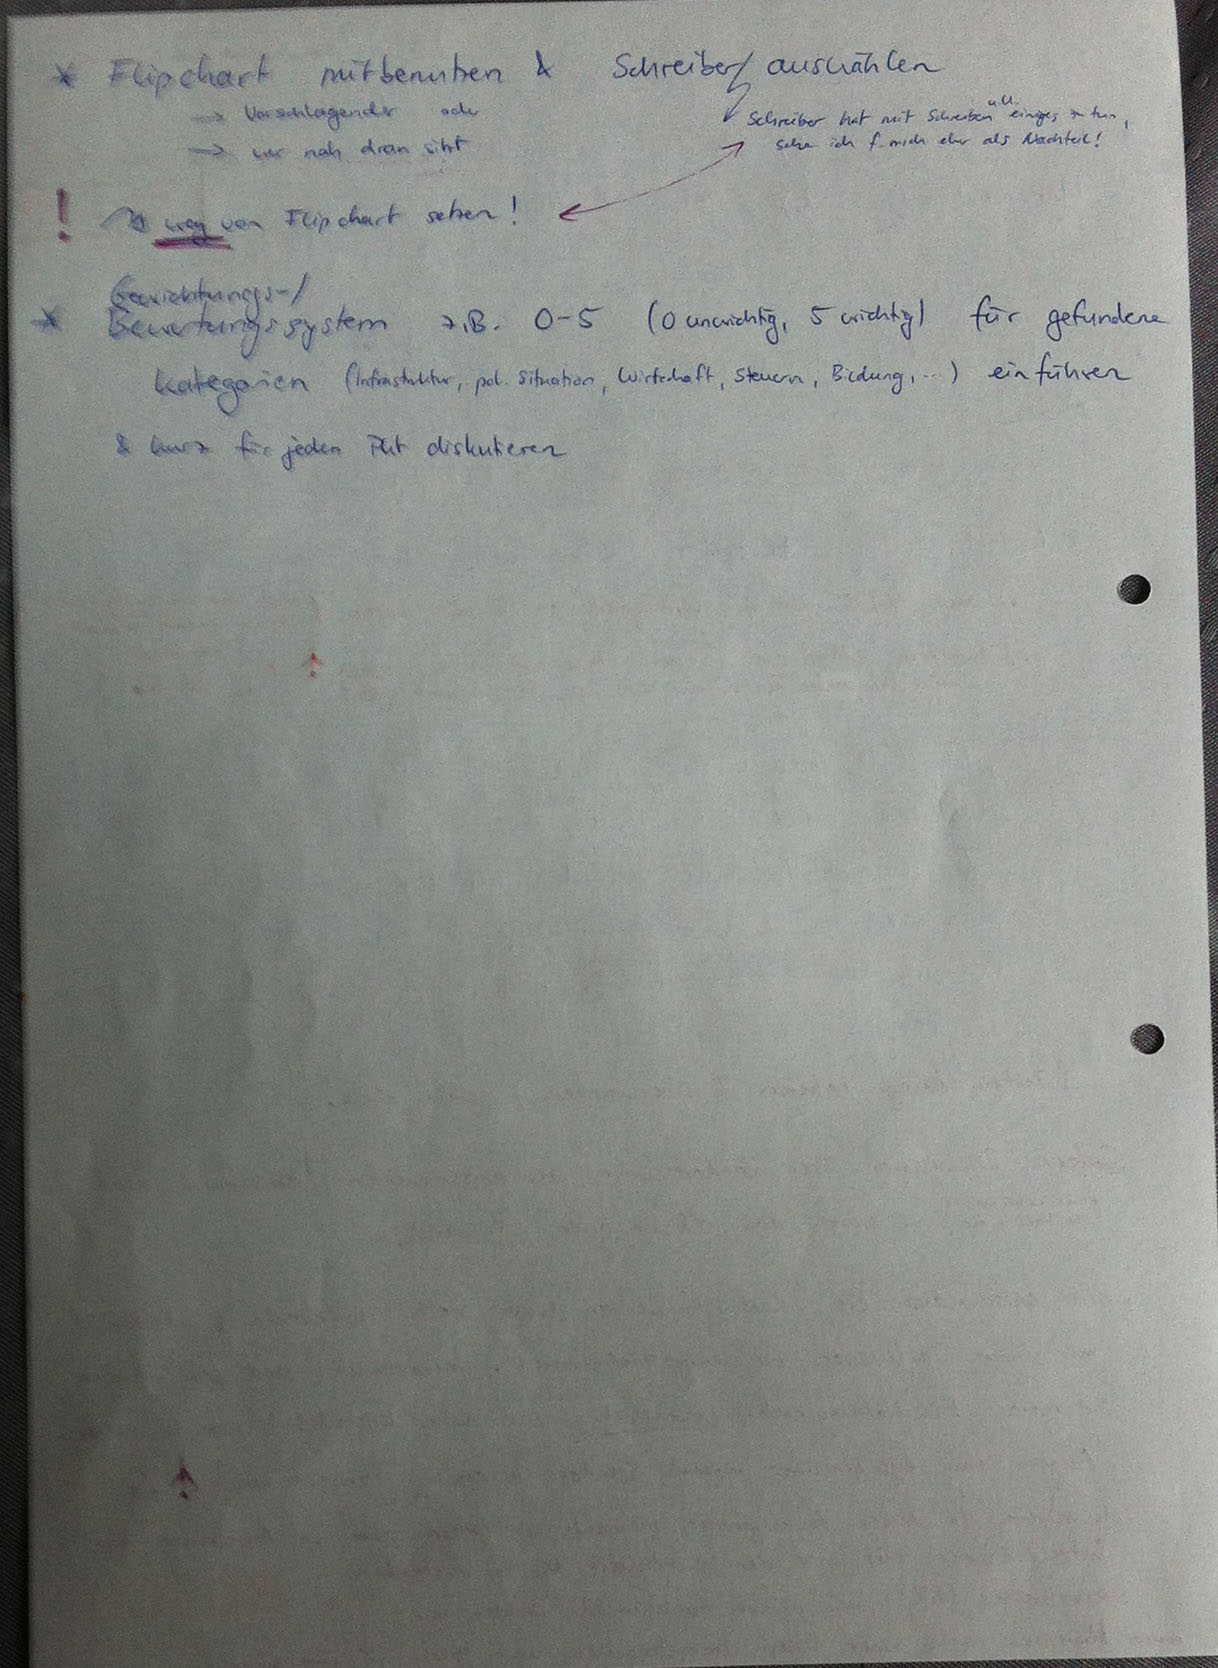 * Flipchart mitbenutzen & Schreiber auswählen
→ Vorschlagender oder
→ wer nah dran sitzt
Schreiber hat mit Schreiben u.U. einiges zu tun,
sehe ich f. mich eher als Nachteil!
! → weg von Flipchart setzen!
Gewichtungs-/
* Bewertungssystem z.B. 0-5 (0 unwichtig, 5 wichtig) für gefundene
Kategorien (Infrastruktur, pol. Situation, Wirtschaft, Steuern, Bildung, ...) einführen
& kurz für jeden Pkt diskutieren